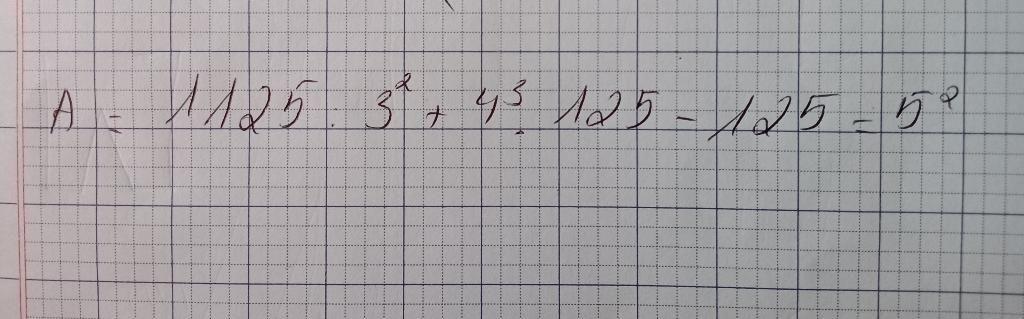 A = 1125 : 3² + 4³. 125 - 125 = 5²